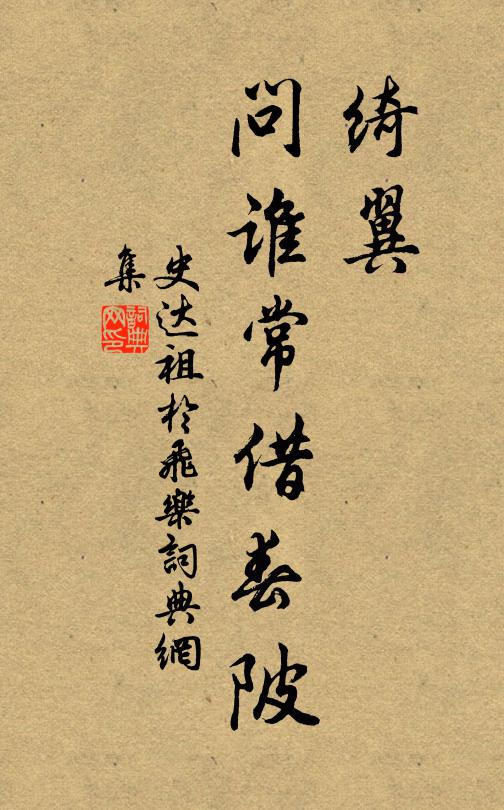 绮翼
问谁常借春陂
史达祖於飞樂詞典網
集
詞典网印